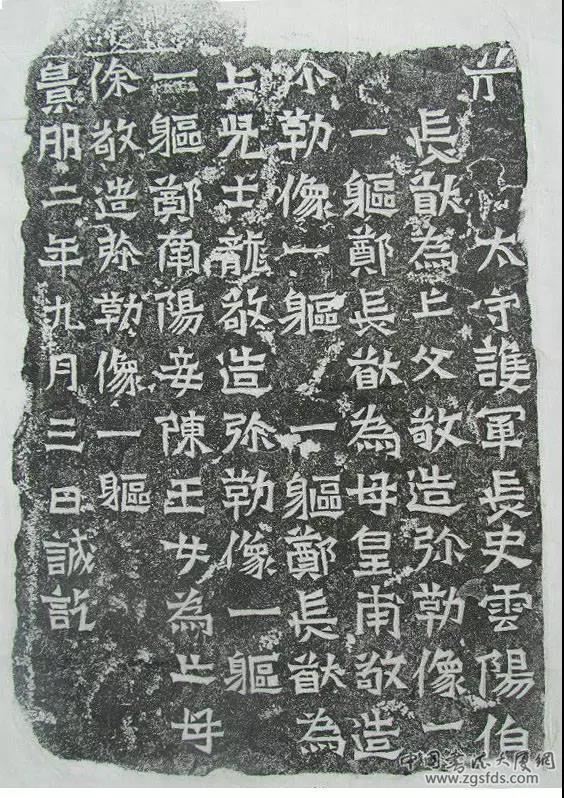 太守護軍長史雲陽伯
長猷為亡父敬造弥勒像一
一軀鄭長猷為母皇甫敬造
弥勒像一軀一軀鄭長猷為
亡兒士龍敬造弥勒像一軀
一軀鄭南陽妾陳王女為亡母
徐敬造弥勒像一軀
景明二年九月三日誡訖
www.zgsfds.com